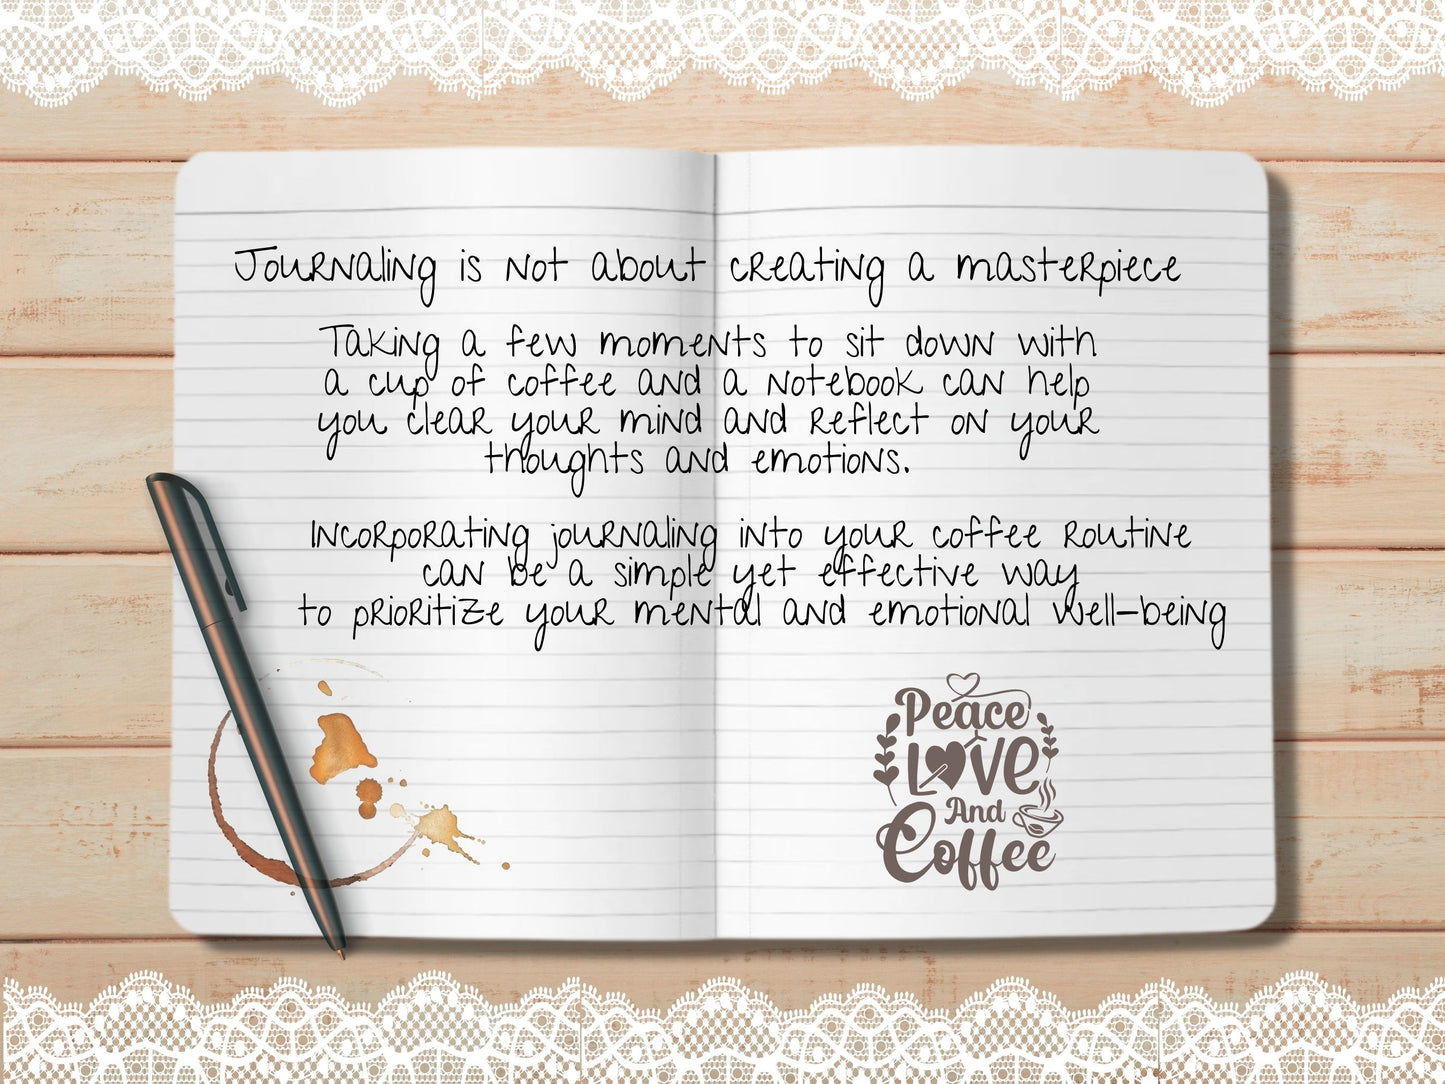 Journaling is not about creating a masterpiece
Taking a few moments to sit down with
a cup of coffee and a notebook can help
you clear your mind and reflect on your
thoughts and emotions.
Incorporating journaling into your coffee routine
can be a simple yet effective way
to prioritize your mental and emotional well-being
Peace
Love
And
Coffee